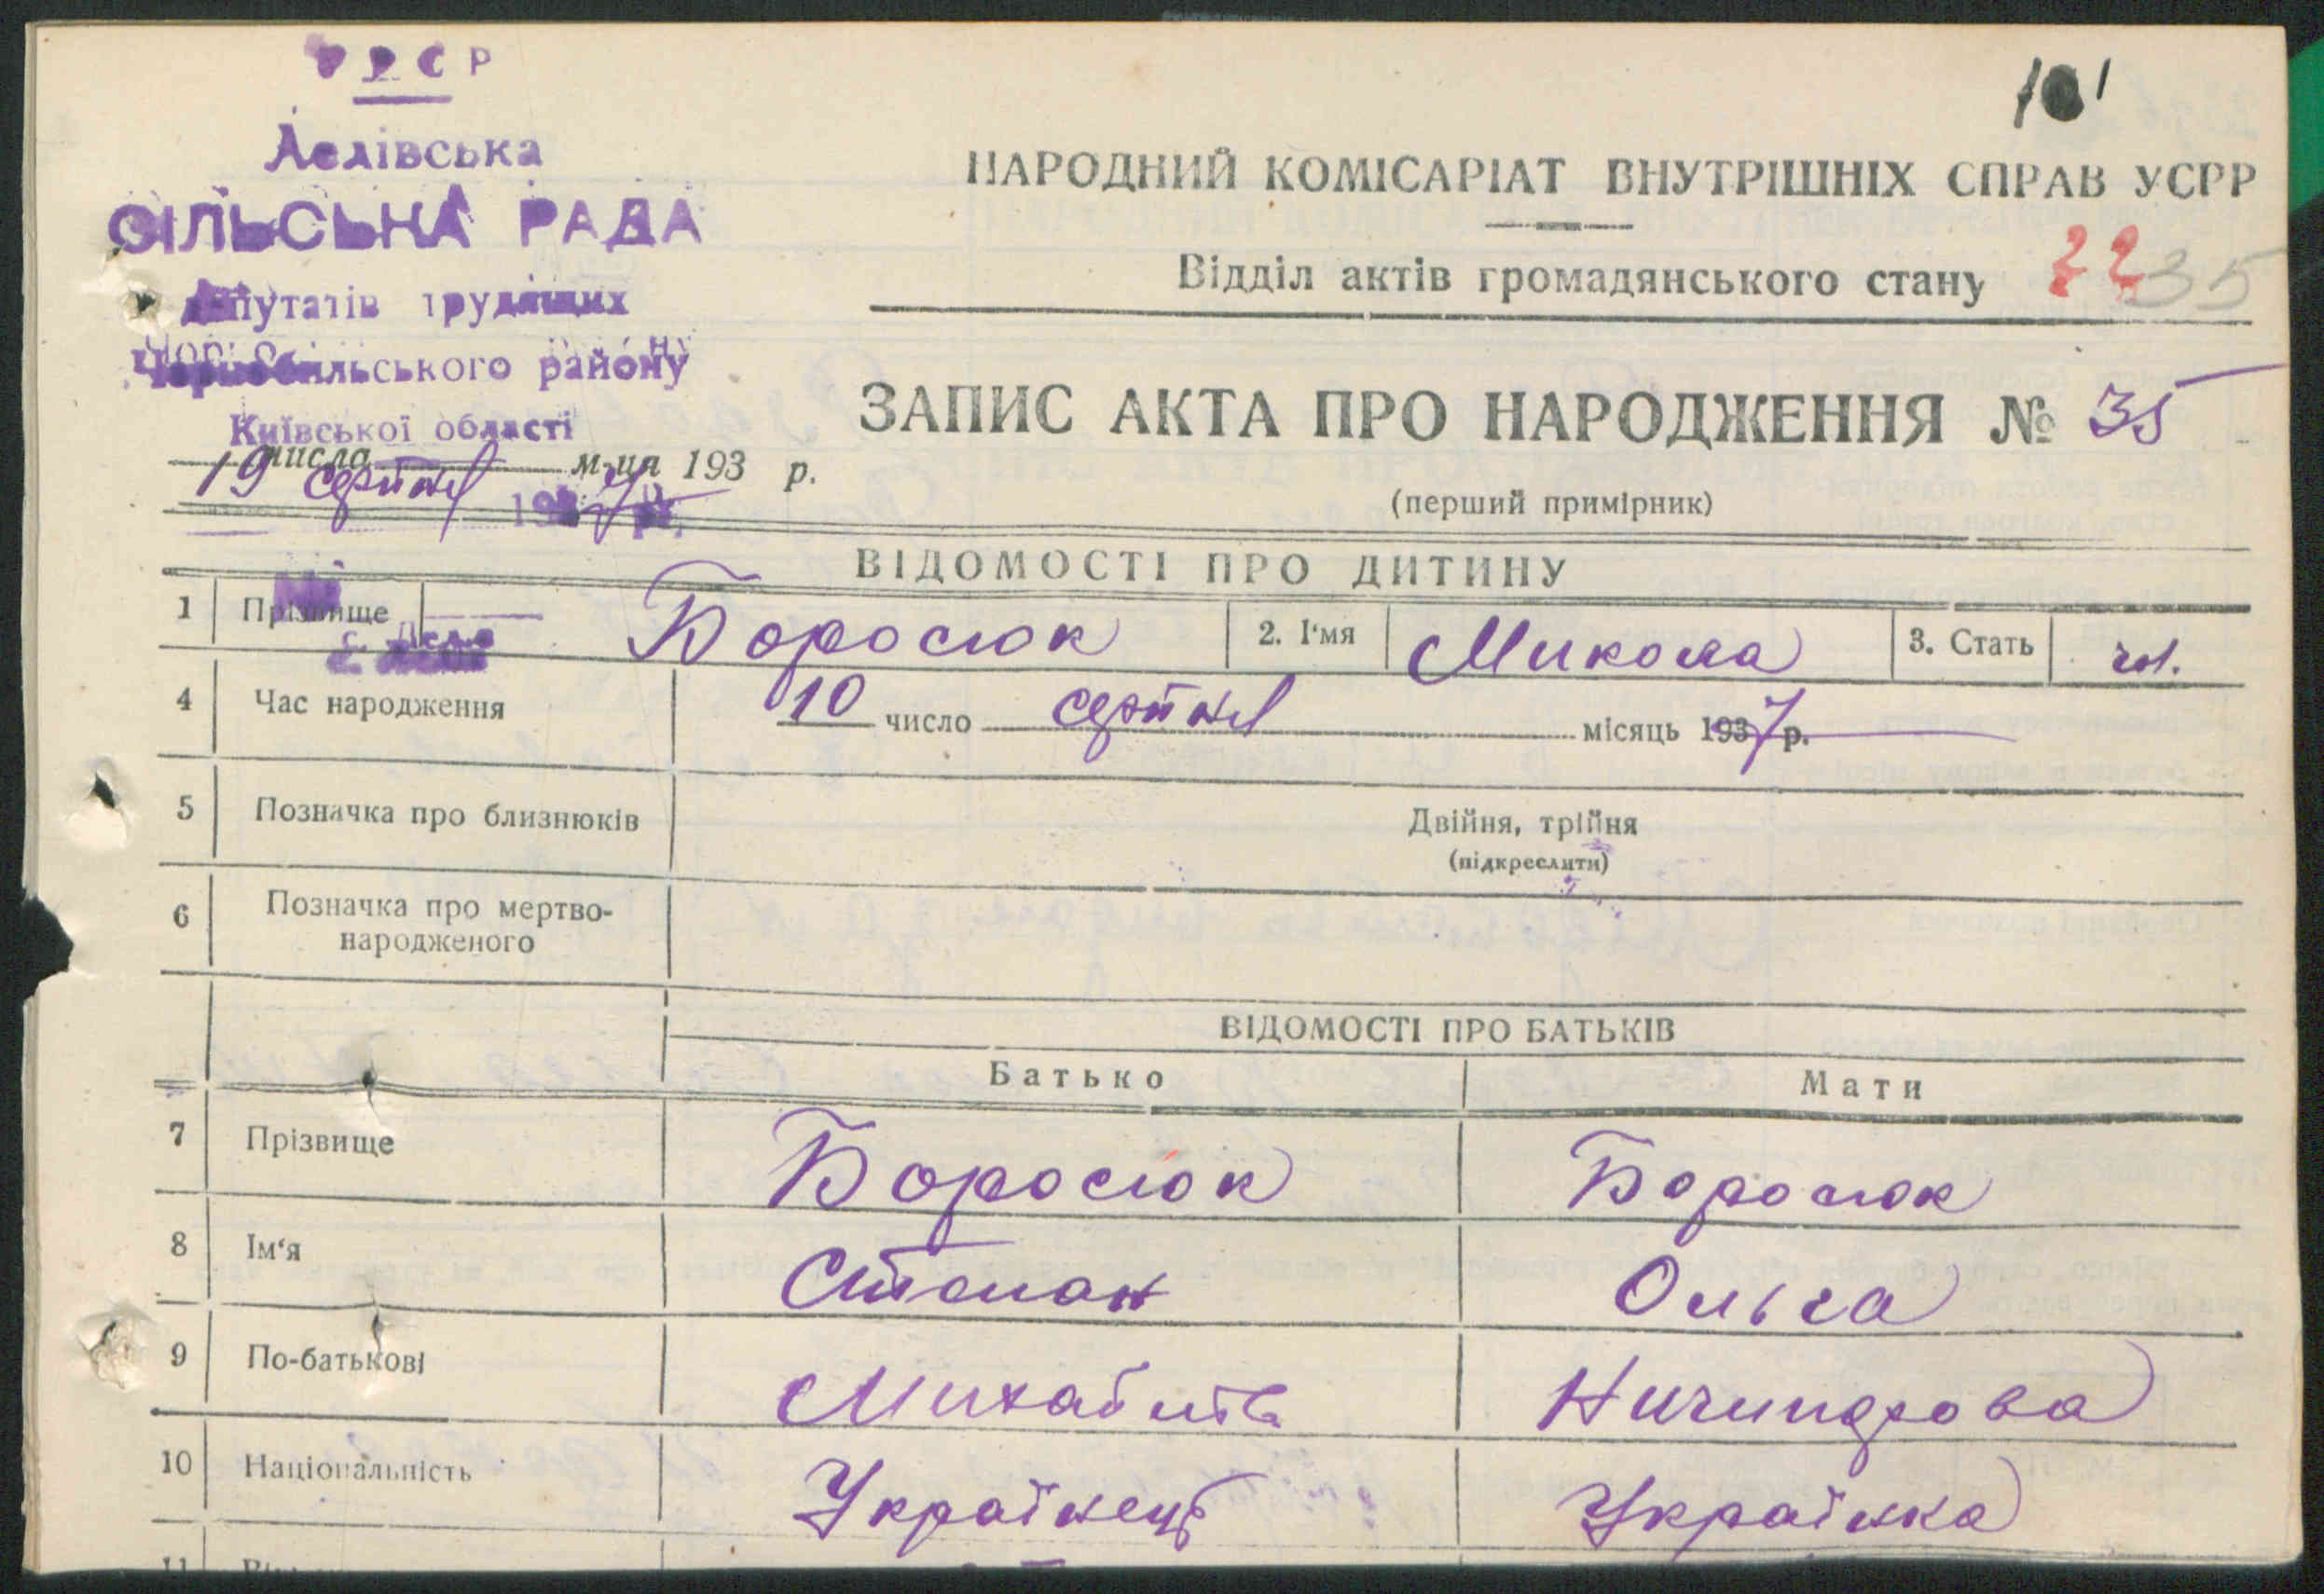 УРСР
Лелівська
СІЛЬСЬКА РАДА
депутатів трудящих
Чорнобильського району
Київської області
числа м-ця 193 р.
19 серпня 1937 р.
101
НАРОДНИЙ КОМІСАРІАТ ВНУТРІШНІХ СПРАВ УСРР
Відділ актів громадянського стану
22 35
ЗАПИС АКТА ПРО НАРОДЖЕННЯ № 35
(перший примірник)
ВІДОМОСТІ ПРО ДИТИНУ
1 Прізвище Боросюк 2. І'мя Микола 3. Стать чл.
4 Час народження 10 число серпня місяць 1937 р.
5 Позначка про близнюків Двійня, трійня
(підкреслити)
6 Позначка про мертво-
народженого
ВІДОМОСТІ ПРО БАТЬКІВ
Батько Мати
7 Прізвище Боросюк Боросюк
8 Ім'я Степан Ольга
9 По-батькові Ничипорова
10 Національність Українець Українка
11